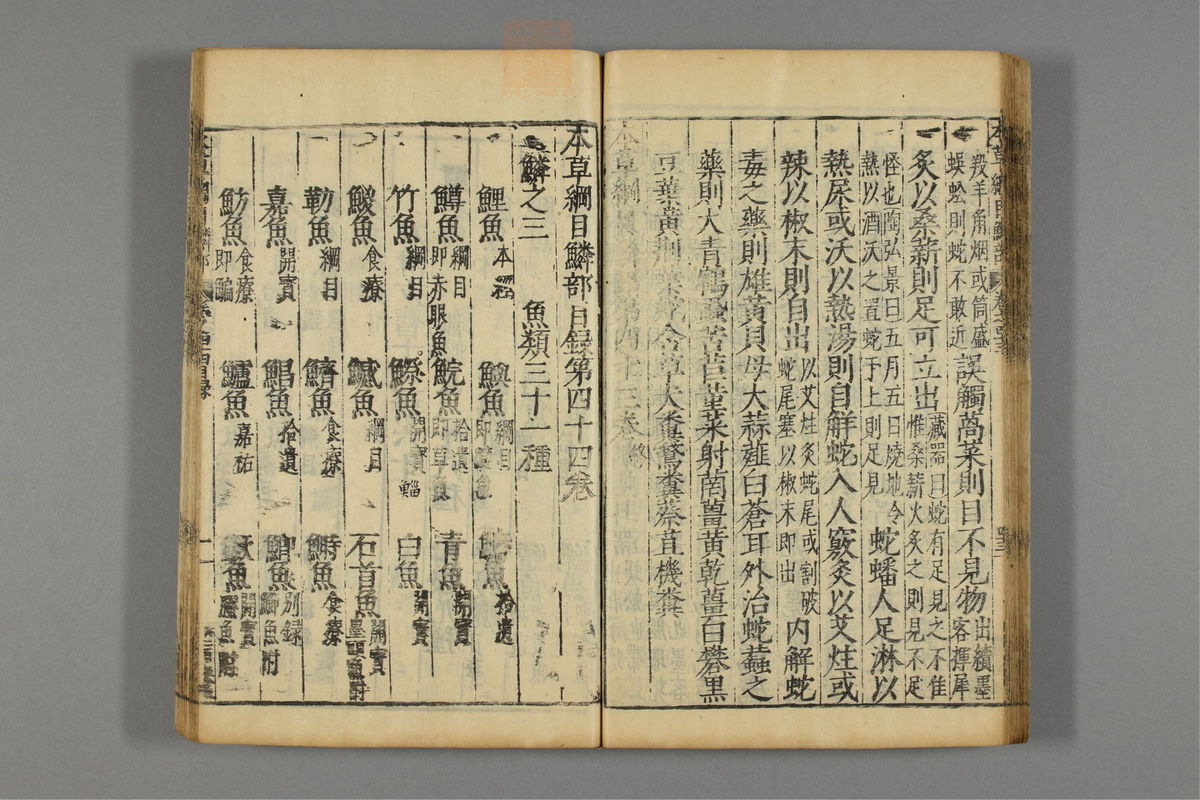 羖羊角烟或筒盛
蜈蚣則蛇不敢近
誤觸萵菜則目不見物
出續墨
客揮犀
炙以桑薪則足可立出
藏器曰蛇有足見之不佳
惟桑薪火炙之則見不足
怪也陶弘景曰五月五日燒地令
熱以酒沃之置蛇于上則足見
蛇蟠人足淋以
熱尿或沃以熱湯則自解蛇入人竅灸以艾炷或
辣以椒末則自出
以艾炷灸蛇尾或割破
蛇尾塞以椒末即出
内解蛇
毒之藥則雄黃貝母大蒜薤白蒼耳外治蛇蠚之
藥則大青鶴蝨苦苣菫菜射罔薑黃乾薑白礬黑
豆葉黃荆葉蛇含草犬糞鵞糞蔡苴機糞
本草綱目鱗部目錄第四十四卷
鱗之三
魚類三十一種
鯉魚
本經
鱮魚
綱目
鱅魚
拾遺
鱒魚
綱目
即赤眼魚
鯇魚
拾遺
即草魚
青魚
開寶
竹魚
綱目
鯔魚
開寶
白魚
開寶
鯼魚
食療
鱤魚
綱目
石首魚
開寶
墨頭魚附
勒魚
綱目
鱭魚
食療
鰣魚
食療
嘉魚
開寶
鯧魚
拾遺
鯽魚
別錄
鯽魚附
魴魚
食療
即鯿
鱸魚
嘉祐
鱖魚
開寶
䲍魚附